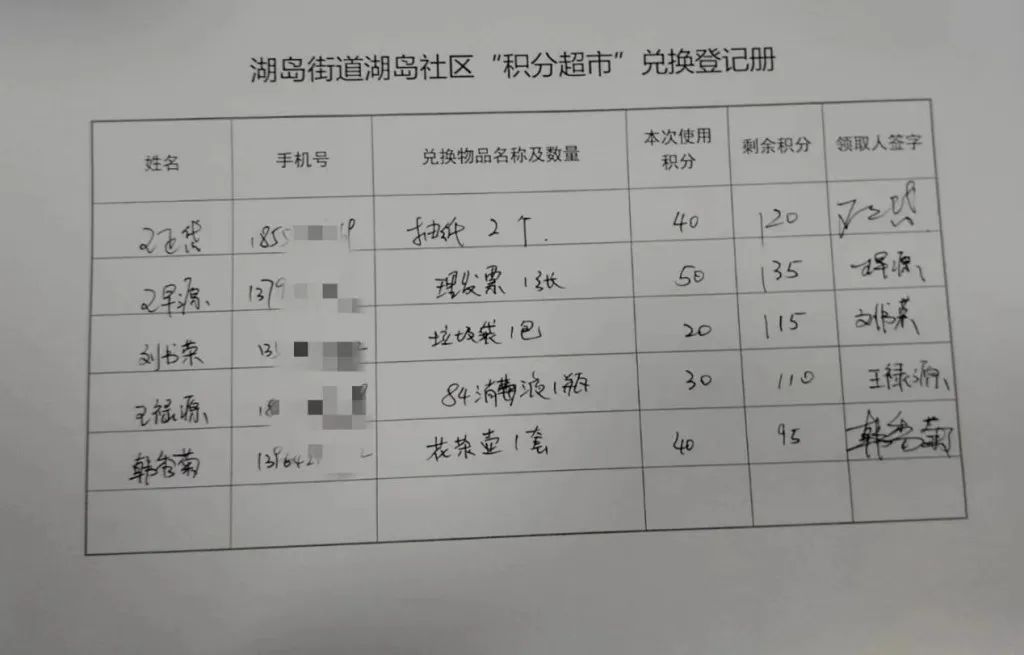 湖岛街道湖岛社区“积分超市”兑换登记册
姓名 手机号 兑换物品名称及数量 本次使用积分 剩余积分 领取人签字
1855 19 抽纸 2个. 40 120
1379 理发票 1张 50 135
刘书荣 13 垃圾袋1包 20 115 刘书荣
王禄源 18 84消毒液1瓶 30 110 王禄源
韩秀菊 139642 花茶壶1套 40 95 韩秀菊